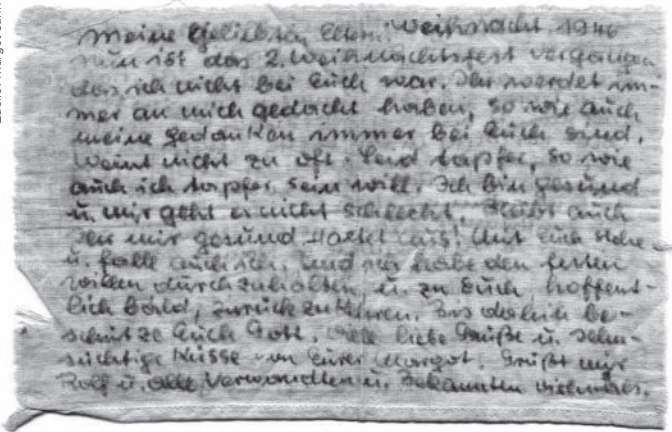 Meine Geliebten Eltern! Weihnacht 1940
nun ist das 2. Weihnachtsfest vergangen
das ich nicht bei Euch war. Ihr werdet im-
mer an mich gedacht haben, so wie auch
meine Gedanken immer bei Euch sind.
Weint nicht zu oft. Seid tapfer, so wie
auch ich tapfer sein will. Ich bin gesund
u. mir geht es nicht schlecht. Bleibt auch
Ihr mir gesund Haltet aus! Mit Euch stehe
u. falle auch ich. Und ich habe den festen
willen durchzuhalten u. zu Euch hoffent-
lich bald, zurückzukehren. Bis dahin be-
schütze Euch Gott. Viele liebe Grüße u. sehn-
süchtige Küsse von Eurer Margot. Grüßt mir
Rolf u. alle Verwandten u. Bekannten vielmals.